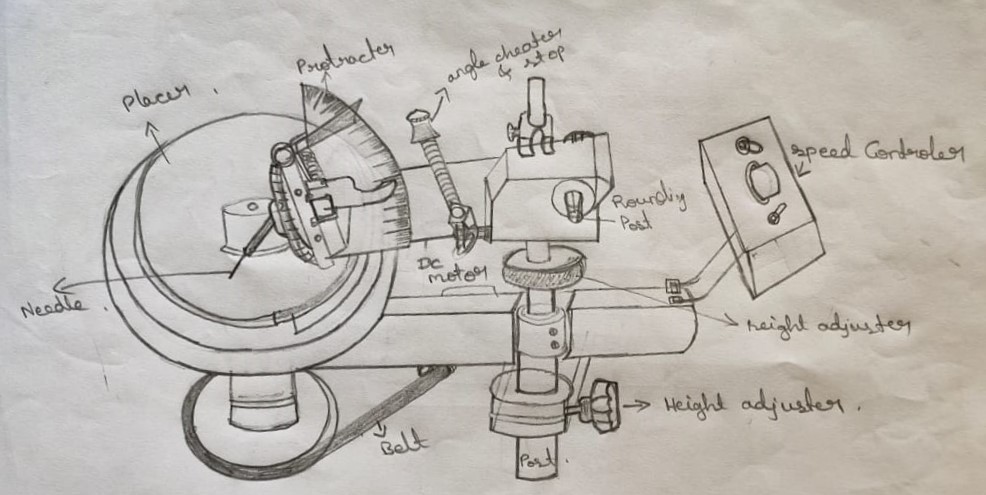 Protracter
angle cheater
& stop
Placer.
speed Controler
Roundiy
Post
DC
motor
Needle.
height adjuster
Height adjuster.
Belt
Post.